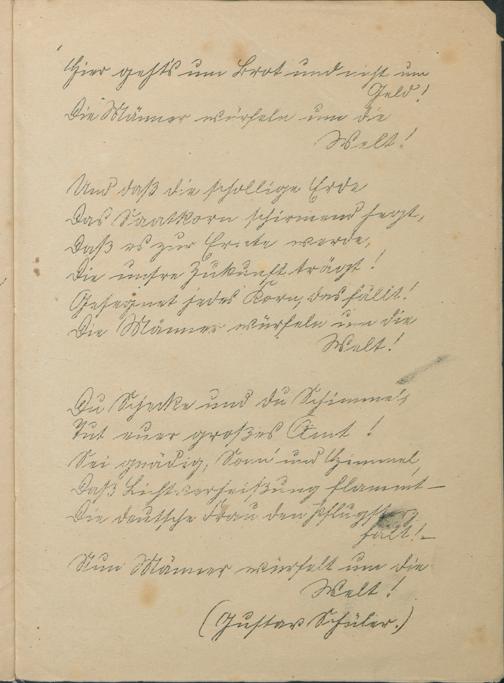 Hier gehts um Brot und nicht um
Geld!
Die Männer würfeln um die
Welt!
Und daß die schollige Erde
Das Saatkorn schirmend hegt,
Daß es zur Ernte werde,
Die unsre Zukunft trägt!
Gesegnet jedes Korn, das fällt!
Die Männer würfeln um die
Welt!
Du Schecke und du Schimmel,
Tut euer großes Amt!
Sei gnädig, Sonn' und Himmel,
Daß Lichtverheißung flammt –
Die deutsche Frau den Pflugsterz
hält! –
Nun Männer würfelt um die
Welt!
(Gustav Schüler.)